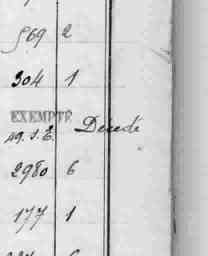 569 2
304 1
EXEMPTÉ
Décédé
2980 6
177 1